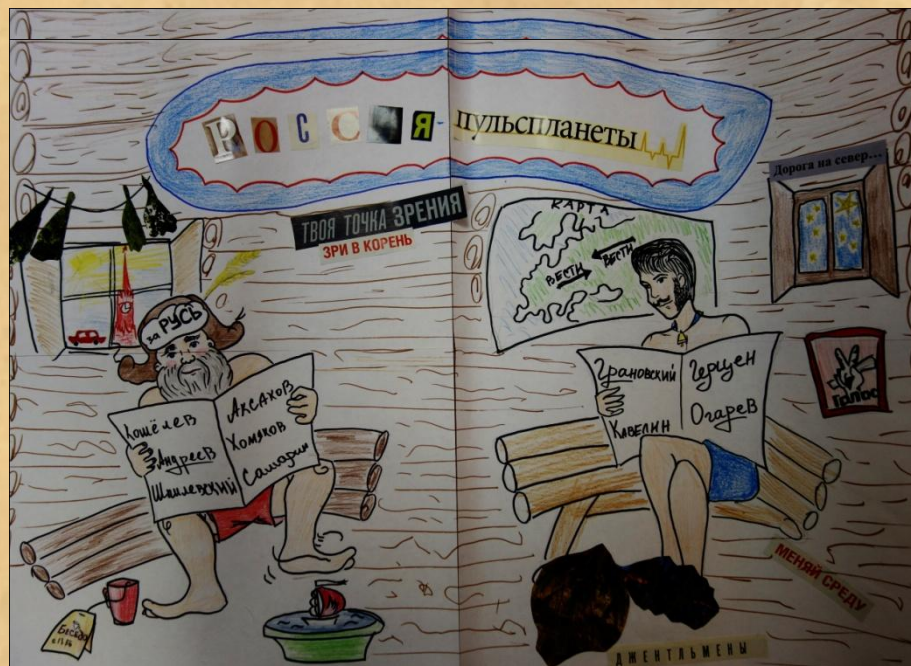 РОССИЯ - пульспланеты
ТВОЯ ТОЧКА ЗРЕНИЯ
ЗРИ В КОРЕНЬ
Дорога на север...
КАРТА
ВЕСТИ
ВЕСТИ
за РУСЬ
Кошелев
Андреев
Шпилевский
Аксаков
Хомяков
Самарин
Грановский
Кавелин
Герцен
Огарев
Голос
МЕНЯЙ СРЕДУ
Беседа
ДЖЕНТЛЬМЕНЫ